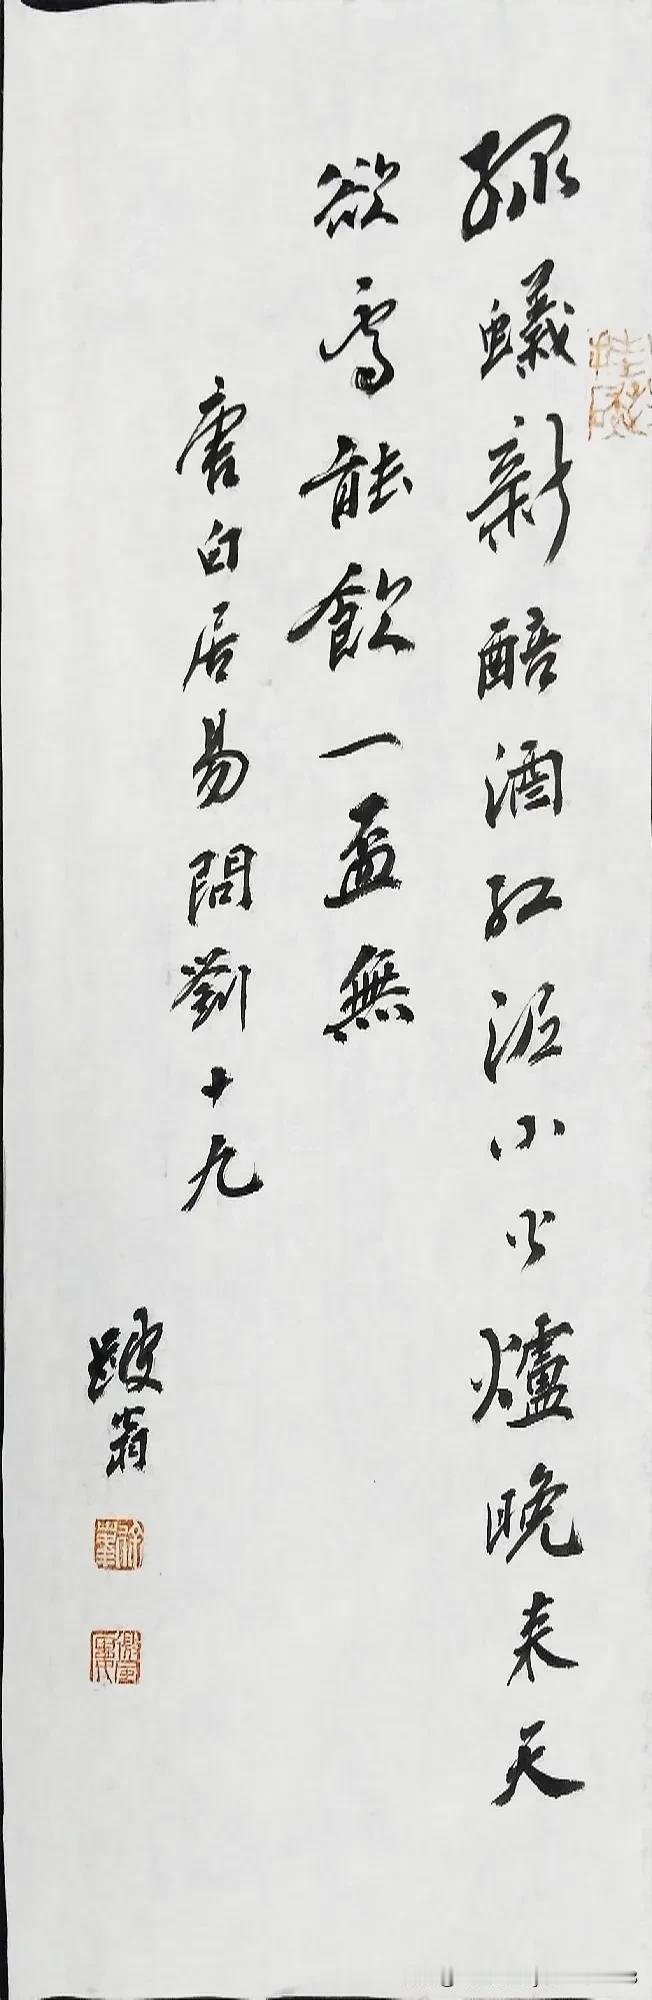 綠蟻新醅酒紅泥小火爐晚来天
欲雪能飲一盃無
唐白居易問劉十九
翁